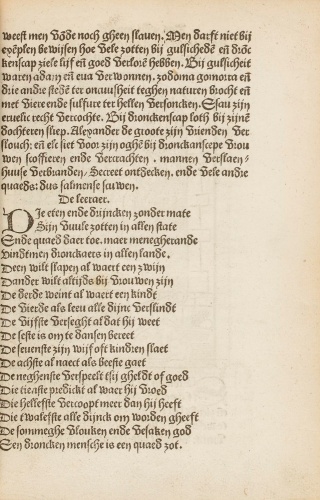 weest men vōde noch gheen slauen. Men darft niet bij
exēplen bewijsen hoe vele zotten bij gulsichedē eñ drōc
kenscap ziele lijf eñ goed verlorē hebben. Bij gulsicheit
waren adam eñ eua verwonnen. zodoma gomorra eñ
drie andre stedē ter oncuusheit teghen naturen brocht eñ
met viere ende sulfure ter hellen versoncken. Esau zijn
eruelic recht vercochte. Bij dronckenscap loth bij zijnē
dochteren sliep. Alexander de groote zijn vrienden ver
slouch: eñ elc siet voor zijn oghē bij dronckanscepe vrou
wen scoffieren ende vercrachten . mannen verslaen/
huuse verbranden/ Secreet ontdecken. ende vele andre
quaeds: dus salmense scuwen.
De leeraer.
DIe eten ende drijncken zonder mate
Sijn vuule zotten in allen state
Ende quaed daer toe. maer menegherande
vindtmen dronckaers in allen lande.
Deen wilt slapen al waert een zwijn
Dander wilt altijds bij vrouwen zijn
De derde weint al waert een kindt
De vierde als leeu alle dijnc verslindt
De vijfste verseght al dat hij weet
De seste is om te dansen bereet
De seuenste zijn wijf oft kindren slaet
De achste al naect als beeste gaet
De neghenste verspeelt tsij gheldt of goed
Die tienste predickt al waer hij vroed
Die helleffste vercoopt meer dan hij heeft
Die twalefste alle dijnck om worden gheeft
De sommeghe vlouken ende vesaken god
Een droncken mensche is een quaed zot.